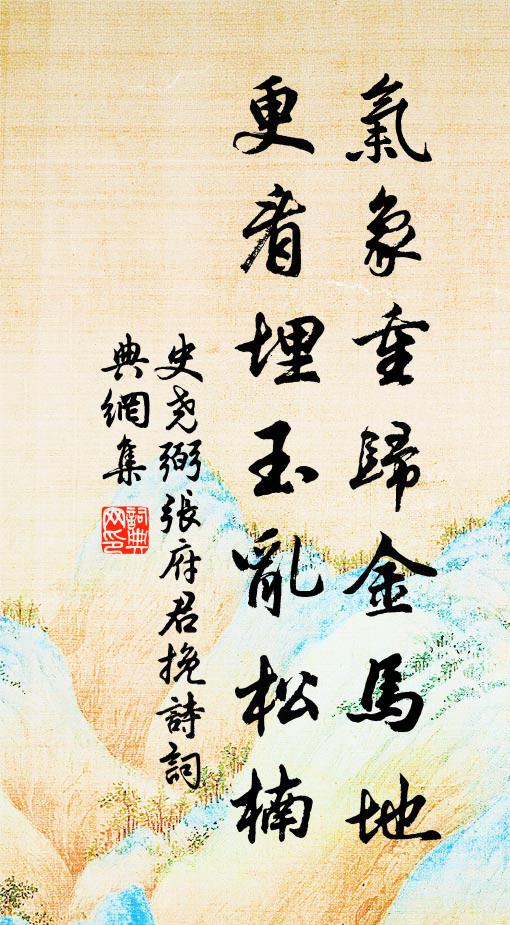 氣象重歸金馬地
更看埋玉亂松楠
史堯弼張府君挽詩詞
典網集
詞典網印